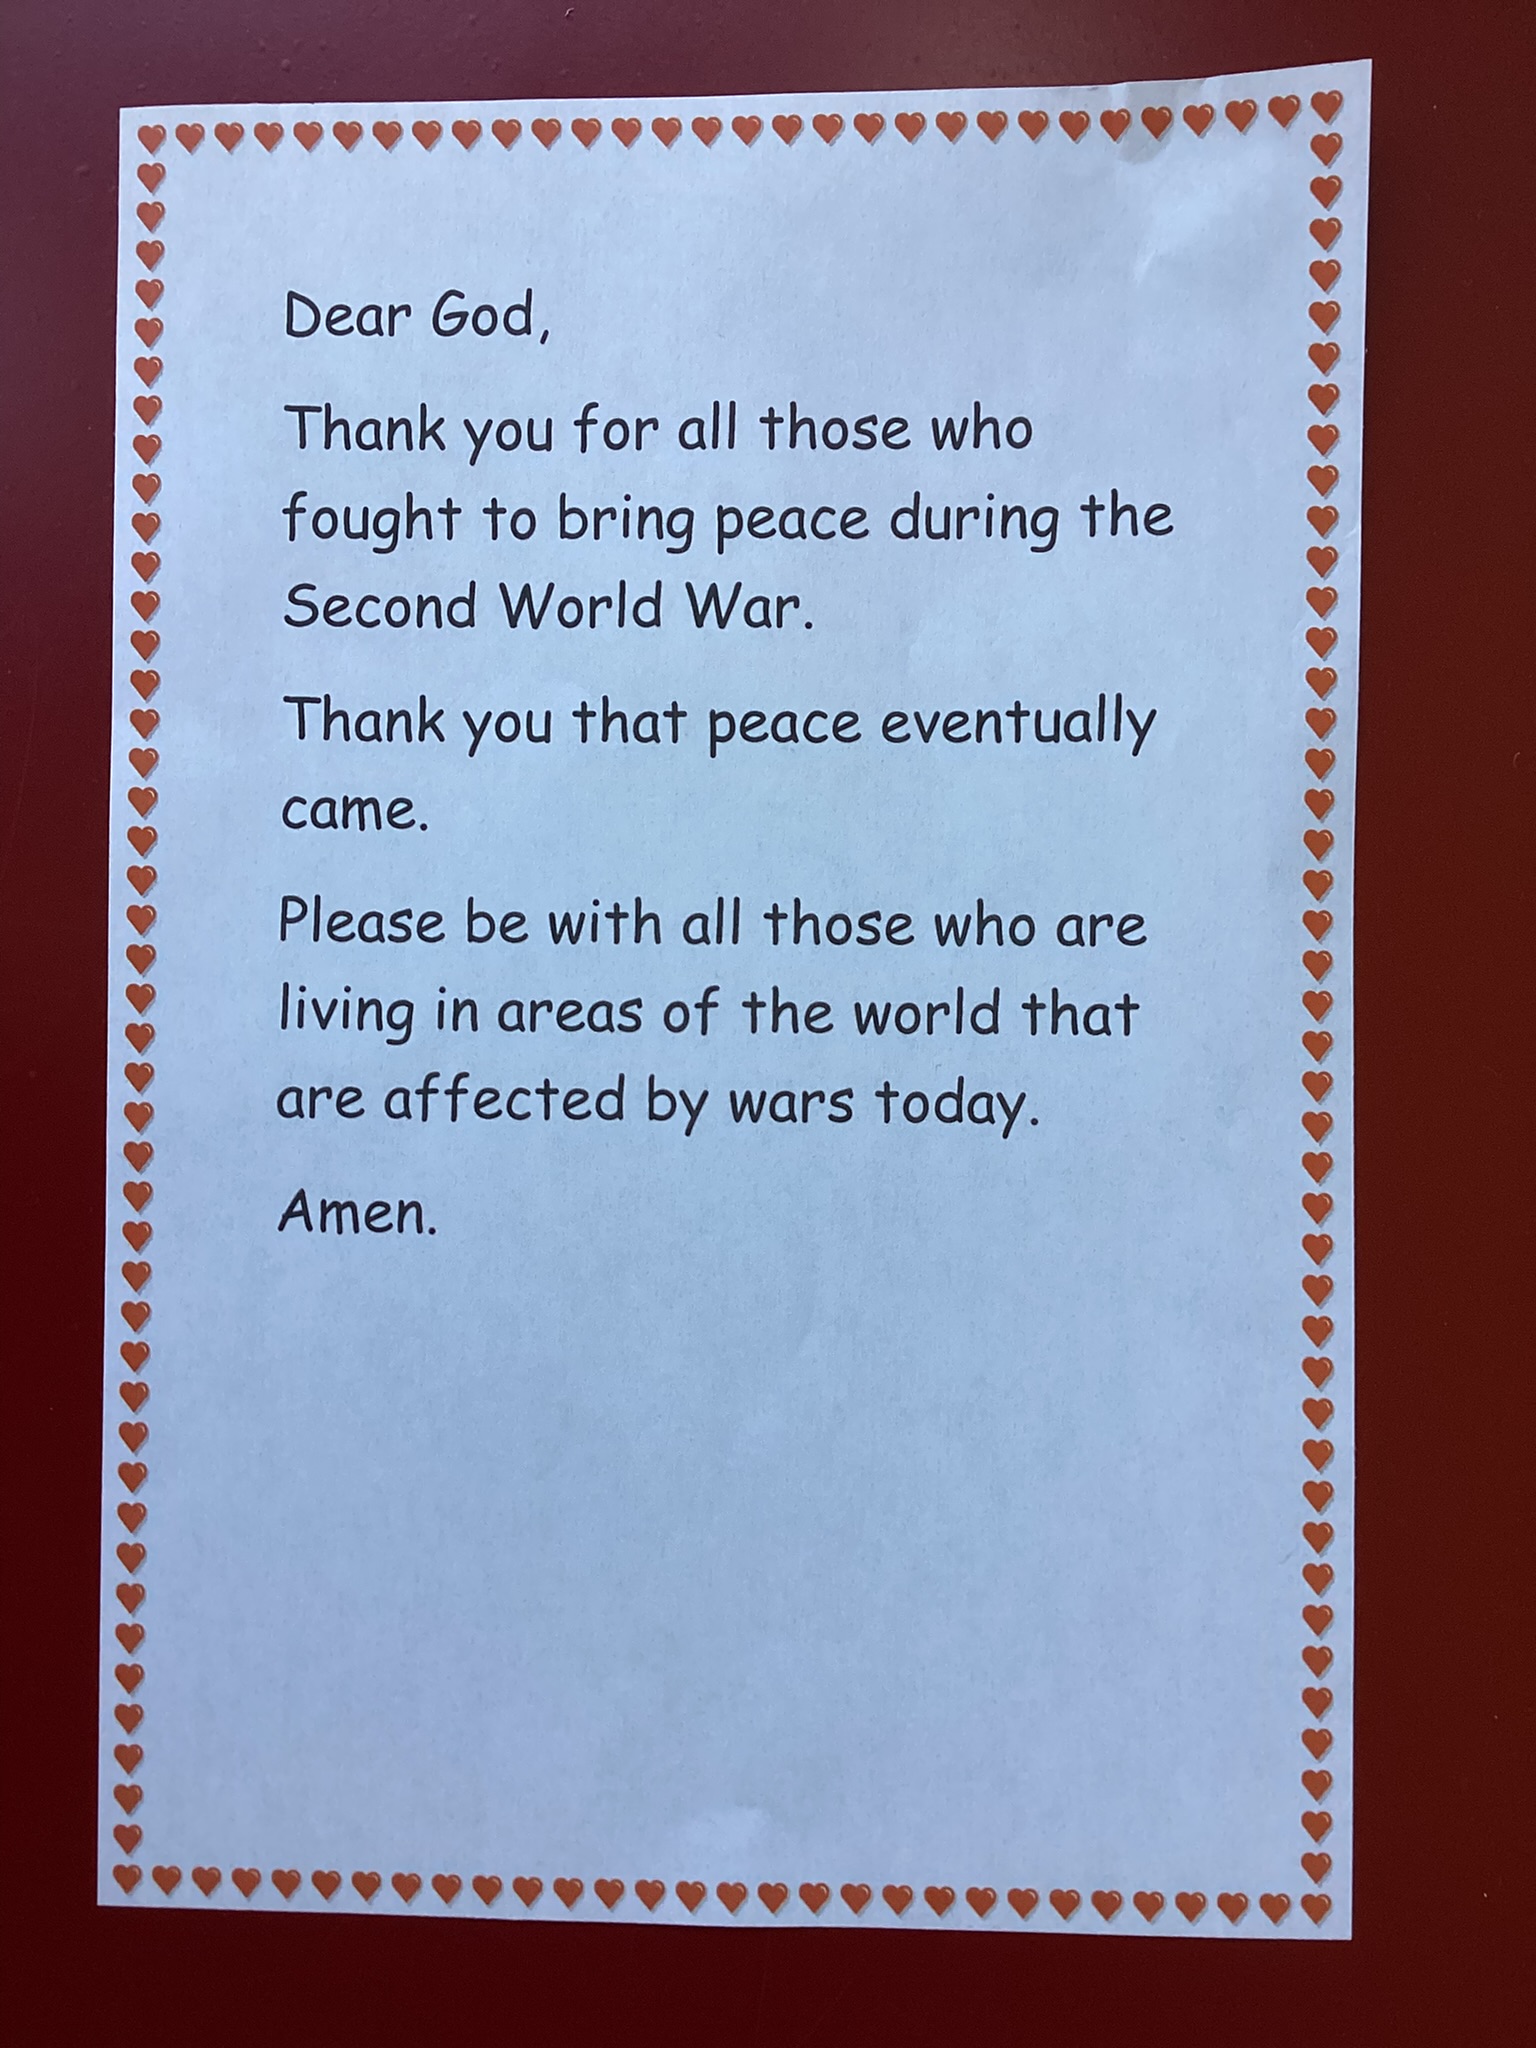 Dear God,
Thank you for all those who
fought to bring peace during the
Second World War.
Thank you that peace eventually
came.
Please be with all those who are
living in areas of the world that
are affected by wars today.
Amen.